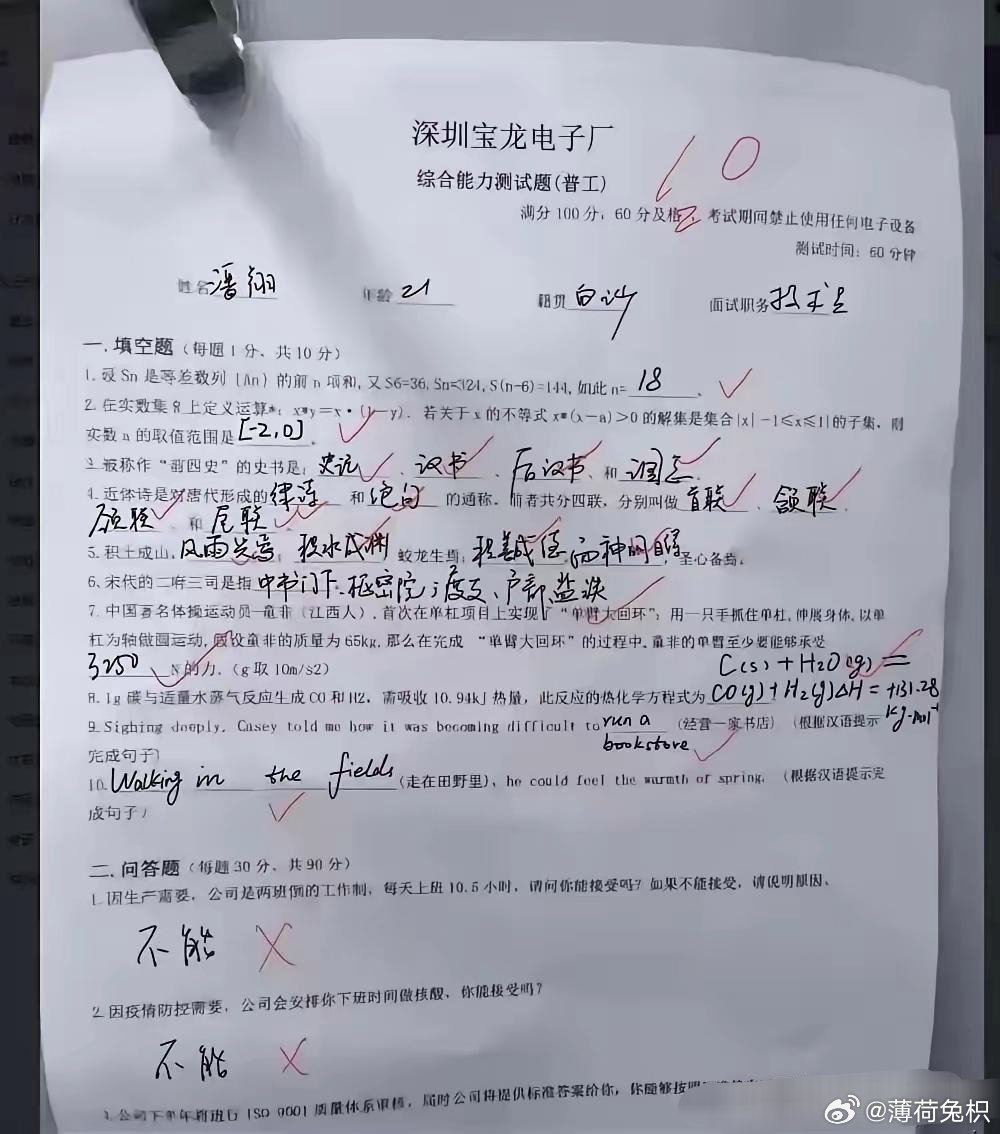 深圳宝龙电子厂
综合能力测试题(普工)
10
满分 100 分，60 分及格，考试期间禁止使用任何电子设备
测试时间：60 分钟
姓名 潘翔 年龄 21 籍贯 白沙 面试职务 技术员
一、填空题（每题 1 分、共 10 分）
1. 设 Sn 是等差数列 {An} 的前 n 项和, 又 S6=36, Sn=324, S(n-6)=144, 如此 n= 18 、
2. 在实数集 R 上定义运算*：x*y＝x·(1－y)．若关于 x 的不等式 x*(x－a)＞0 的解集是集合{x|－1≤x≤1}的子集、则
实数 a 的取值范围是 [-2,0] 。
3. 被称作“前四史”的史书是：史记、汉书、后汉书、和 三国志
4. 近体诗是对唐代形成的 律诗 和 绝句 的通称。前者共分四联，分别叫做 首联、颔联、
颈联、和 尾联、
5. 积土成山, 风雨兴焉；积水成渊 蛟龙生焉；积善成德, 而神明自得, 圣心备焉。
6. 宋代的二府三司是指 中书门下、枢密院；度支、户部、盐铁
7. 中国著名体操运动员童非（江西人）, 首次在单杠项目上实现了“单臂大回环”：用一只手抓住单杠, 伸展身体, 以单
杠为轴做圆运动, 假设童非的质量为 65kg, 那么在完成 “单臂大回环”的过程中, 童非的单臂至少要能够承受
3250 N 的力. (g 取 10m/s2)
8. 1g 碳与适量水蒸气反应生成 CO 和 H2，需吸收 10.94kJ 热量，此反应的热化学方程式为 C(s)+H2O(g)=
CO(g)+H2(g)ΔH=+131.28
kg·mol⁻¹
9. Sighing deeply, Casey told me how it was becoming difficult to run a bookstore （经营一家书店）（根据汉语提示
完成句子）
10. Walking in the fields (走在田野里), he could feel the warmth of spring. （根据汉语提示完
成句子）
二、问答题（每题 30 分、共 90 分）
1. 因生产需要，公司是两班倒的工作制，每天上班 10.5 小时，请问你能接受吗？如果不能接受，请说明原因、
不能
2. 因疫情防控需要，公司会安排你下班时间做核酸、你能接受吗？
不能
3. 公司下半年将进行 ISO 9001 质量体系审核，届时公司将提供标准答案给你，你能够按照
@薄荷兔枳